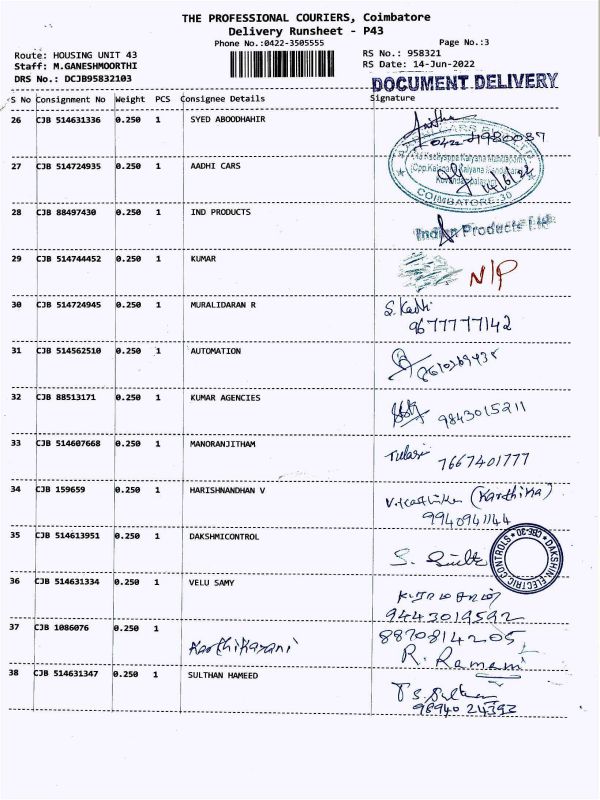 THE PROFESSIONAL COURIERS, Coimbatore
Delivery Runsheet - P43
Phone No.:0422-3505555
Page No.:3
Route: HOUSING UNIT 43
RS No.: 958321
Staff: M.GANESHMOORTHI
RS Date: 14-Jun-2022
DRS No.: DCJB95832103
DOCUMENT DELIVERY
S No Consignment No Weight PCS Consignee Details Signature
26 CJB 514631336 0.250 1 SYED ABOODHAHIR
27 CJB 514724935 0.250 1 AADHI CARS
14/6/22
COIMBATORE-30
28 CJB 88497430 0.250 1 IND PRODUCTS
Indian Products Ltd
29 CJB 514744452 0.250 1 KUMAR N/P
30 CJB 514724945 0.250 1 MURALIDARAN R
9677777142
31 CJB 514562510 0.250 1 AUTOMATION
8610269435
32 CJB 88513171 0.250 1 KUMAR AGENCIES
9843015211
33 CJB 514607668 0.250 1 MANORANJITHAM Tulasi
7667401777
34 CJB 159659 0.250 1 HARISHNANDHAN V V.Karthika (Karthika)
9940941144
35 CJB 514613951 0.250 1 DAKSHMICONTROL
DAKSHIN ELECTRIC CONTROLS CBE-30
36 CJB 514631334 0.250 1 VELU SAMY
9443019592
37 CJB 1086076 0.250 1 8870814205
Karthikarani R. Ramani
38 CJB 514631347 0.250 1 SULTHAN HAMEED
T.S. Sulthan
98940 24393